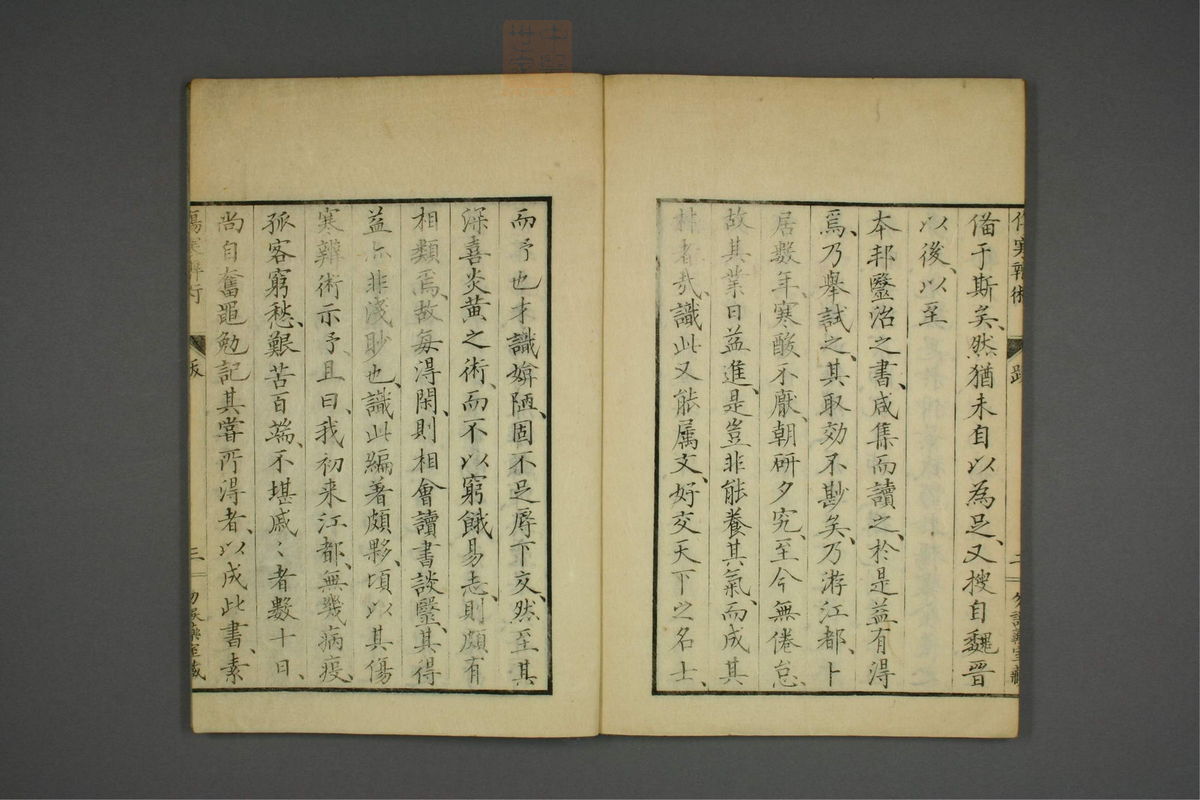 備于斯矣、然猶未自以為足、又搜自魏晋
以後、以至
本邦醫治之書、咸集而讀之、於是益有得
焉、乃舉試之、其取効不尠矣、乃游江都、卜
居數年、寒酸不厭、朝研夕究、至今無倦怠、
故其業日益進、是豈非能養其氣、而成其
材者哉、識此又能属文、好交天下之名士、
而予也才識媕陋、固不足辱下交、然至其
深喜炎黄之術、而不以窮餓易志、則頗有
相類焉、故每得閑、則相會讀書談醫、其得
益亦非淺眇也、識此編著頗夥、頃以其傷
寒辨術示予、且曰、我初来江都、無幾病疫、
孤客窮愁、艱苦百端、不堪戚〻者數十日、
尚自奮黽勉記其嘗所得者、以成此書、素
傷寒辨術 跋 三